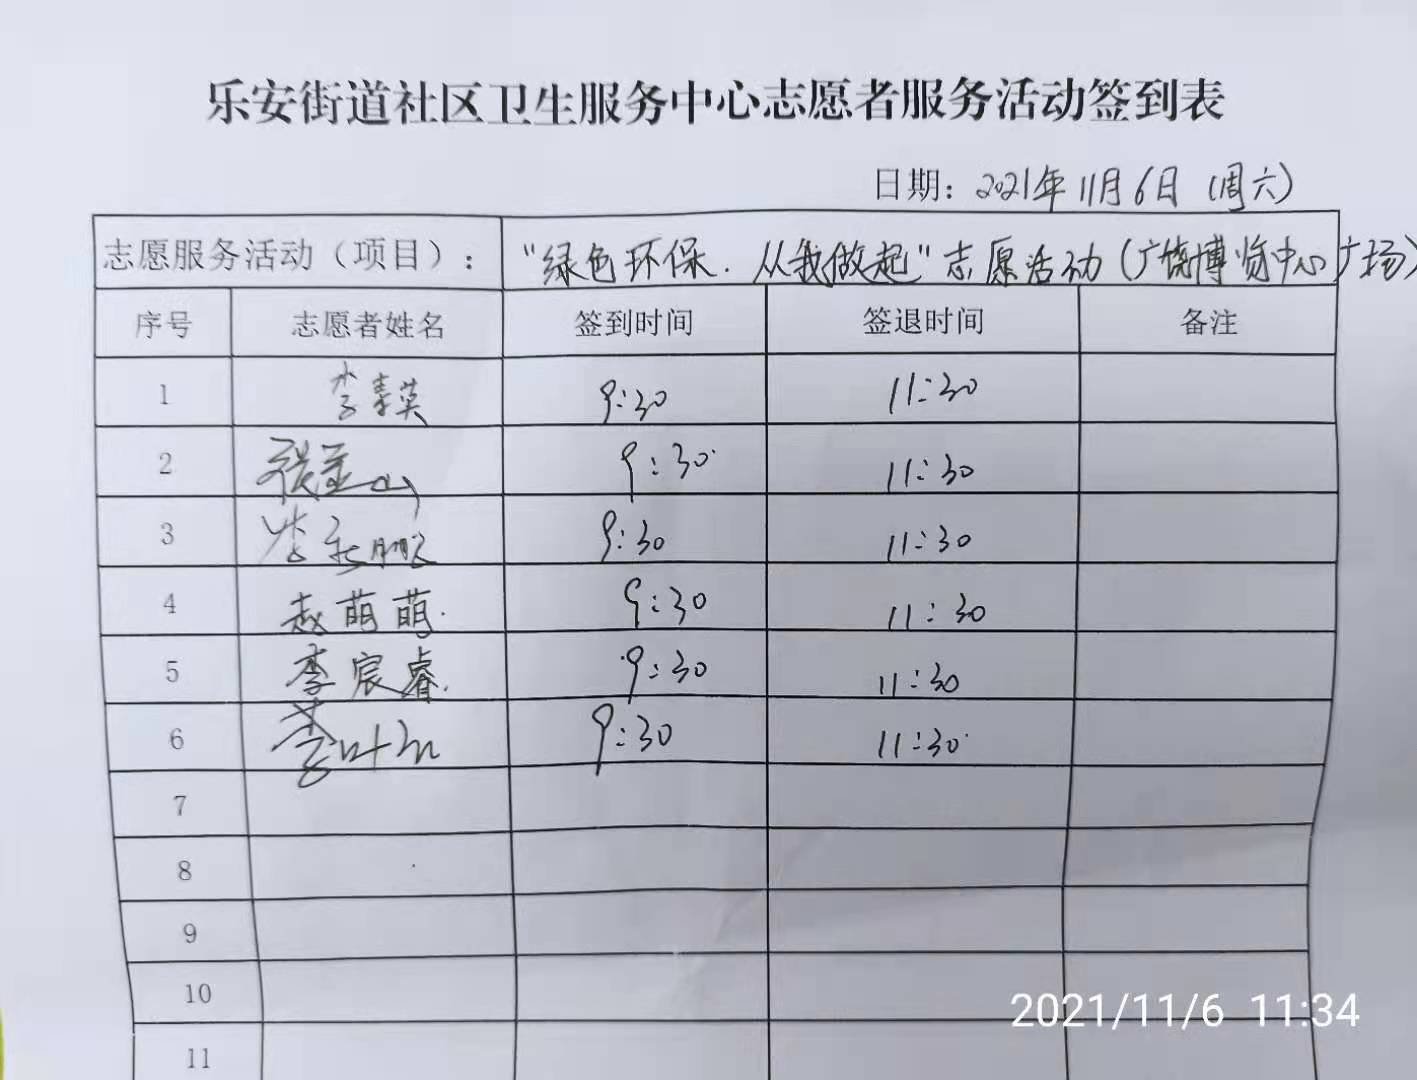 乐安街道社区卫生服务中心志愿者服务活动签到表
日期：2021年11月6日（周六）
志愿服务活动（项目）： “绿色环保．从我做起”志愿活动（广饶博览中心广场）
序号 志愿者姓名 签到时间 签退时间 备注
1 李春英 9:30 11:30
2 张金山 9:30 11:30
3 9:30 11:30
4 赵萌萌. 9:30 11:30
5 李宸睿. 9:30 11:30
6 9:30 11:30
7
8
9
10
11
2021/11/6 11:34